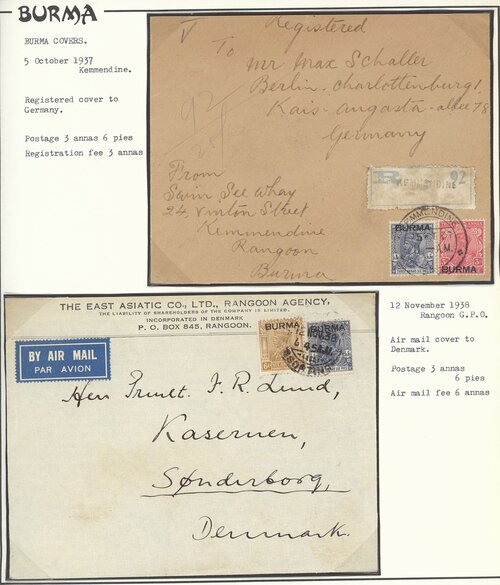 BURMA
BURMA COVERS.
5 October 1937
Kemmendine.
Registered cover to
Germany.
Postage 3 annas 6 pies
Registration fee 3 annas
Registered
To
Mr Max Schaller
Berlin, Charlottenburg 1,
Kais-Angasta-allee 78
Germany
From
Swim See Whay
24, Vinton Street
Kemmendine
Rangoon
Burma
R
92
KEMMENDINE
KEMMENDINE
BURMA
BURMA
THE EAST ASIATIC CO., LTD., RANGOON AGENCY,
THE LIABILITY OF SHAREHOLDERS OF THE COMPANY IS LIMITED.
INCORPORATED IN DENMARK
P. O. BOX 845, RANGOON.
BY AIR MAIL
PAR AVION
BURMA
BURMA
Herr
F. R. Lund,
Kasernen,
Sønderborg,
Denmark.
12 November 1938
Rangoon G.P.O.
Air mail cover to
Denmark.
Postage 3 annas
6 pies
Air mail fee 6 annas